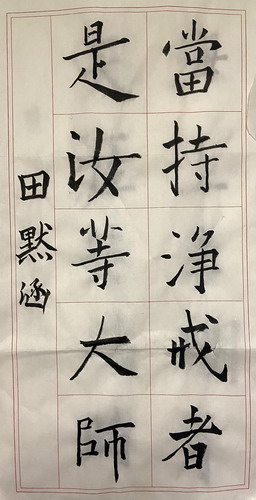 當持淨戒者
是汝等大師
田默涵